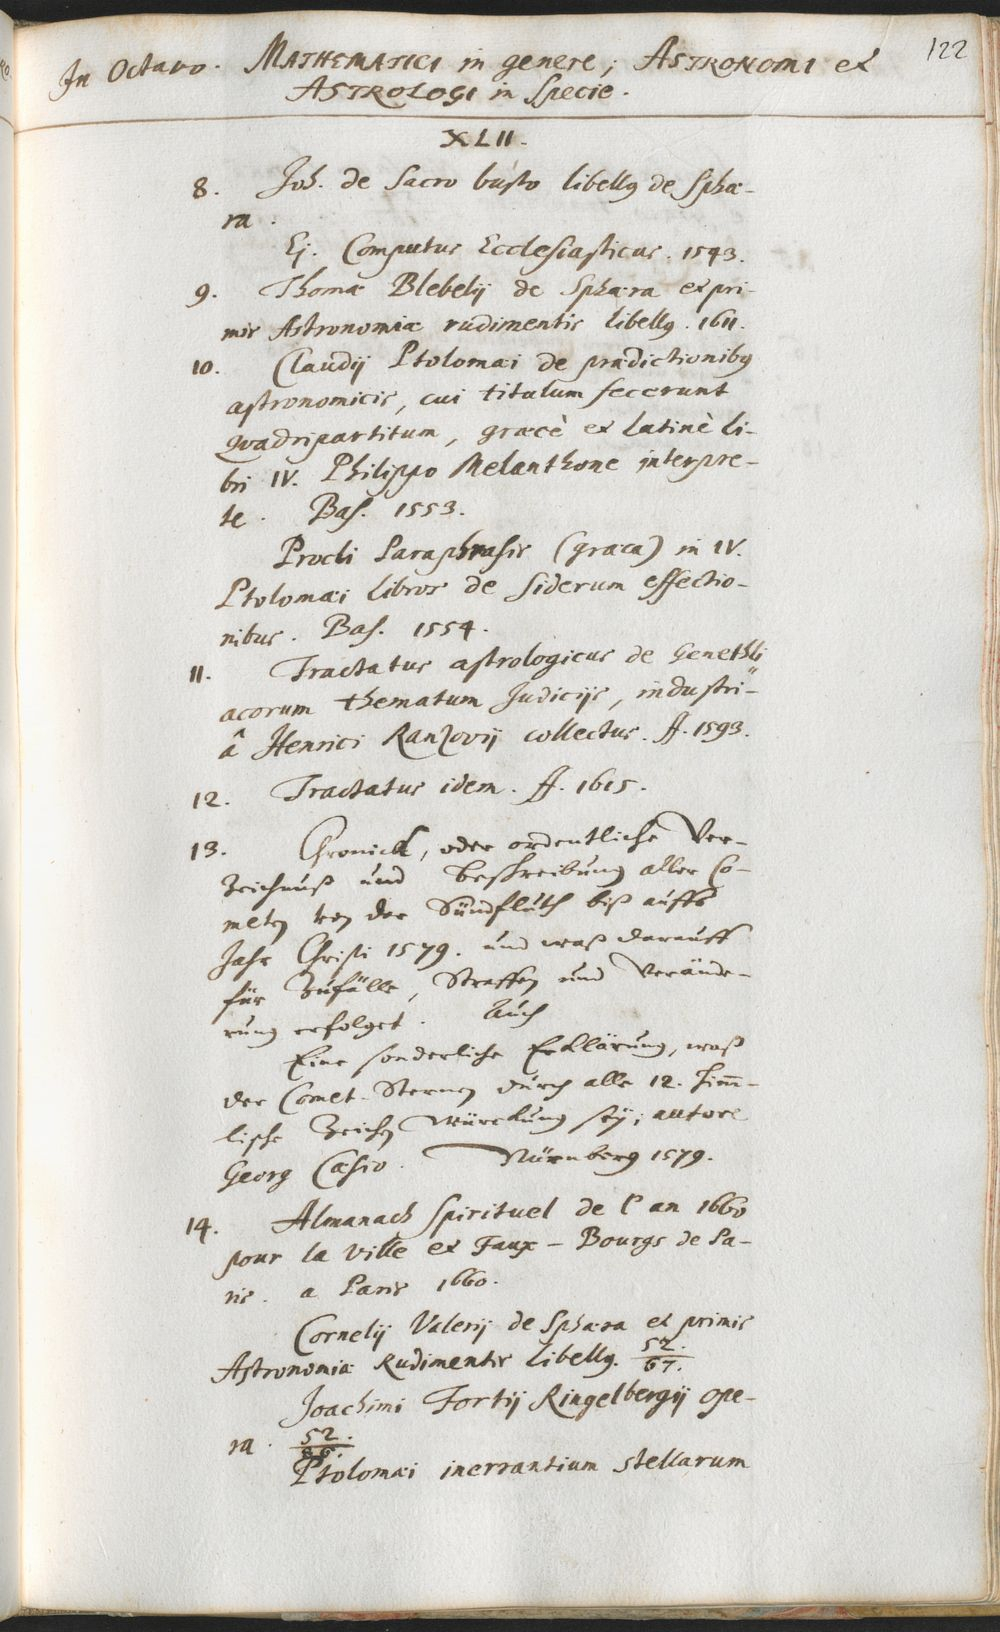 122
In Octavo. MATHEMATICI in genere; ASTRONOMI et
ASTROLOGI in Specie.
XLII.
8. Joh. de Sacro busto libellꝰ de Sphæ-
ra.
Ej. Computus Ecclesiasticus. 1543.
9. Thomæ Blebelij de Sphæra et pri-
mis Astronomiæ rudimentis libellꝰ. 1611.
10. Claudij Ptolomæi de prædictionibꝰ
astronomicis, cui titulum fecerunt
Quadripartitum, græcè et Latinè li-
bri IV. Philippo Melanthone interpre-
te. Bas. 1553.
Procli Paraphrasis (græca) in IV.
Ptolomæi libros de Siderum effectio-
nibus. Bas. 1554.
11. Tractatus astrologicus de Genethli
acorum thematum Judicijs, industri-
â Henrici Ranzovij collectus. ff. 1593.
12. Tractatus idem. ff. 1615.
13. Chronick, oder ordentliche Ver-
zeichnuß und beschreibung aller Co-
meten von der Sündfluth biß auffs
Jahr Christi 1579. und waß darauff
für Zufälle, Straffen und Verände-
rung erfolget. Auch
Eine sonderliche Erklärung, waß
der Comet-Sternen durch alle 12. Him̄-
lische Zeichen Würckung seÿ; autore
Georg Cæsio. Nürnberg 1579.
14. Almanach Spirituel de l'an 1660
pour la Ville et Faux-Bourgs de Pa-
ris. a Paris 1660.
Cornelij Valerij de Sphæra et primis
Astronomiæ Rudimentis libellꝰ. 52./67.
Joachimi Fortij Ringelbergij ope-
ra. 52.
Ptolomæi inerrantium stellarum